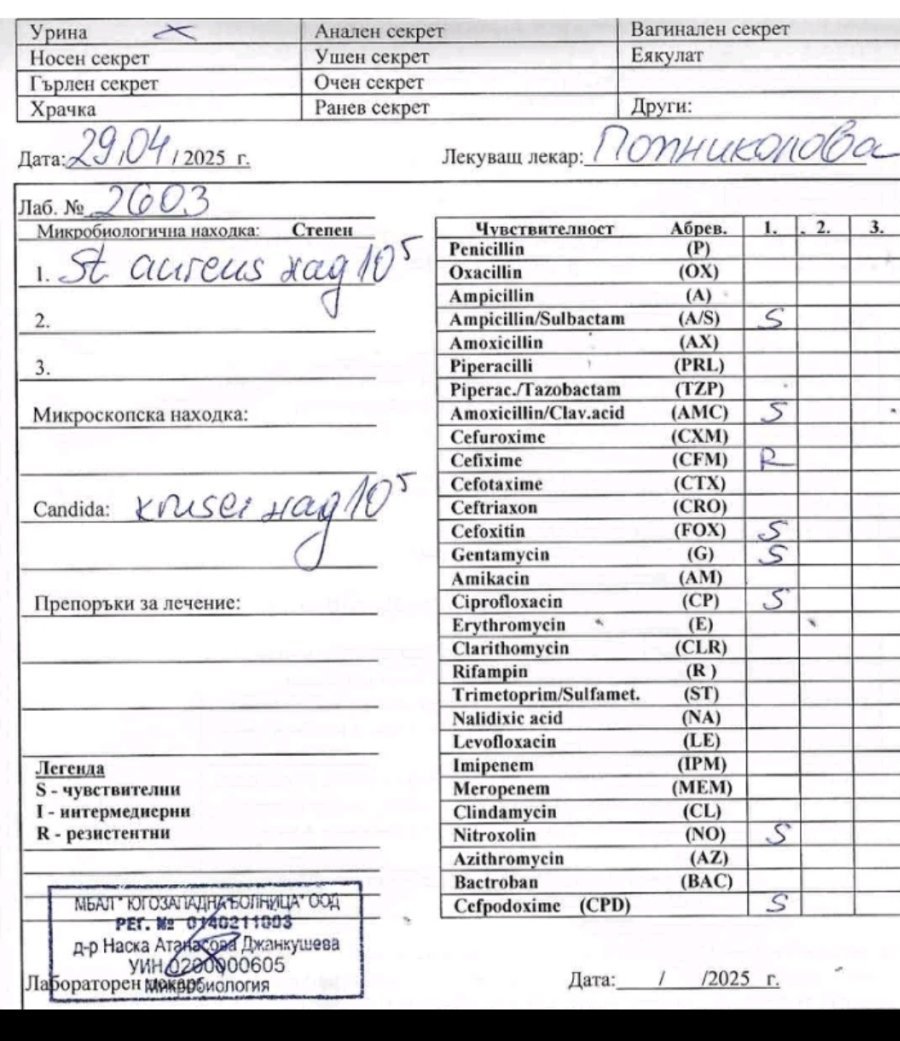 Урина Анален секрет Вагинален секрет
Носен секрет Ушен секрет Еякулат
Гърлен секрет Очен секрет
Храчка Ранев секрет Други:
Дата: 29,04 / 2025 г. Лекуващ лекар: Попниколова
Лаб. № 2603
Микробиологична находка: Степен
1. St aureus над 10⁵
2.
3.
Микроскопска находка:
Candida: krusei над 10⁵
Препоръки за лечение:
Легенда
S - чувствителни
I - интермедиерни
R - резистентни
Чувствителност Абрев. 1. 2. 3.
Penicillin (P)
Oxacillin (OX)
Ampicillin (A)
Ampicillin/Sulbactam (A/S) S
Amoxicillin (AX)
Piperacilli (PRL)
Piperac./Tazobactam (TZP)
Amoxicillin/Clav.acid (AMC) S
Cefuroxime (CXM)
Cefixime (CFM) R
Cefotaxime (CTX)
Ceftriaxon (CRO)
Cefoxitin (FOX) S
Gentamycin (G) S
Amikacin (AM)
Ciprofloxacin (CP) S
Erythromycin (E)
Clarithomycin (CLR)
Rifampin (R )
Trimetoprim/Sulfamet. (ST)
Nalidixic acid (NA)
Levofloxacin (LE)
Imipenem (IPM)
Meropenem (MEM)
Clindamycin (CL)
Nitroxolin (NO) S
Azithromycin (AZ)
Bactroban (BAC)
Cefpodoxime (CPD) S
МБАЛ " ЮГОЗАПАДНА БОЛНИЦА" ООД
РЕГ. № 0140211003
д-р Наска Атанасова Джанкушева
УИН 0200000605
Микробиология
Лабораторен лекар:
Дата: / /2025 г.